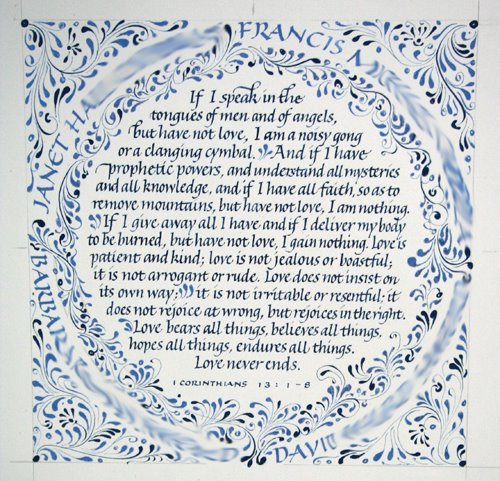 FRANCIS
JANET
If I speak in the
tongues of men and of angels,
but have not love, I am a noisy gong
or a clanging cymbal. And if I have
prophetic powers, and understand all mysteries
and all knowledge, and if I have all faith, so as to
remove mountains, but have not love, I am nothing.
If I give away all I have and if I deliver my body
to be burned, but have not love, I gain nothing. Love is
patient and kind; love is not jealous or boastful;
it is not arrogant or rude. Love does not insist on
its own way; it is not irritable or resentful; it
does not rejoice at wrong, but rejoices in the right.
Love bears all things, believes all things,
hopes all things, endures all things.
Love never ends.
I CORINTHIANS 13:1-8
DAVID